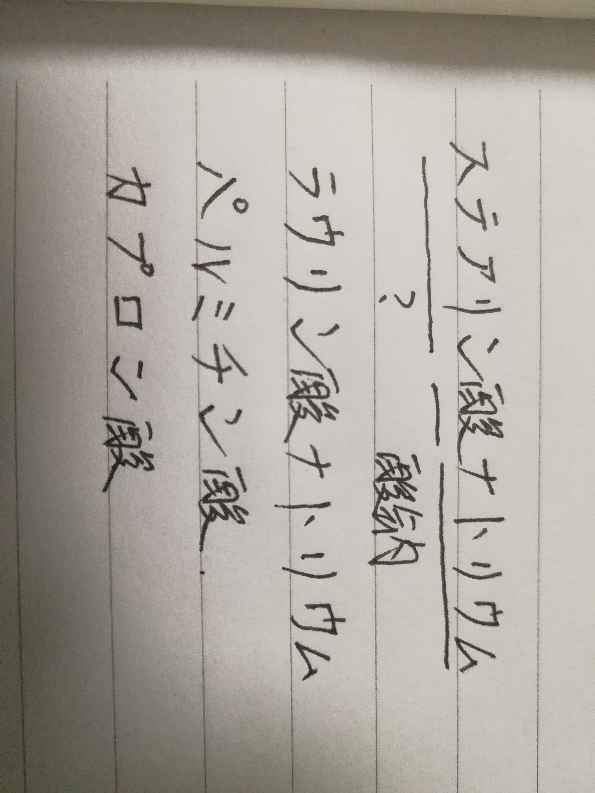 ステアリン酸ナトリウム
? 酸納
ラウリン酸ナトリウム
パルミチン酸
カプロン酸